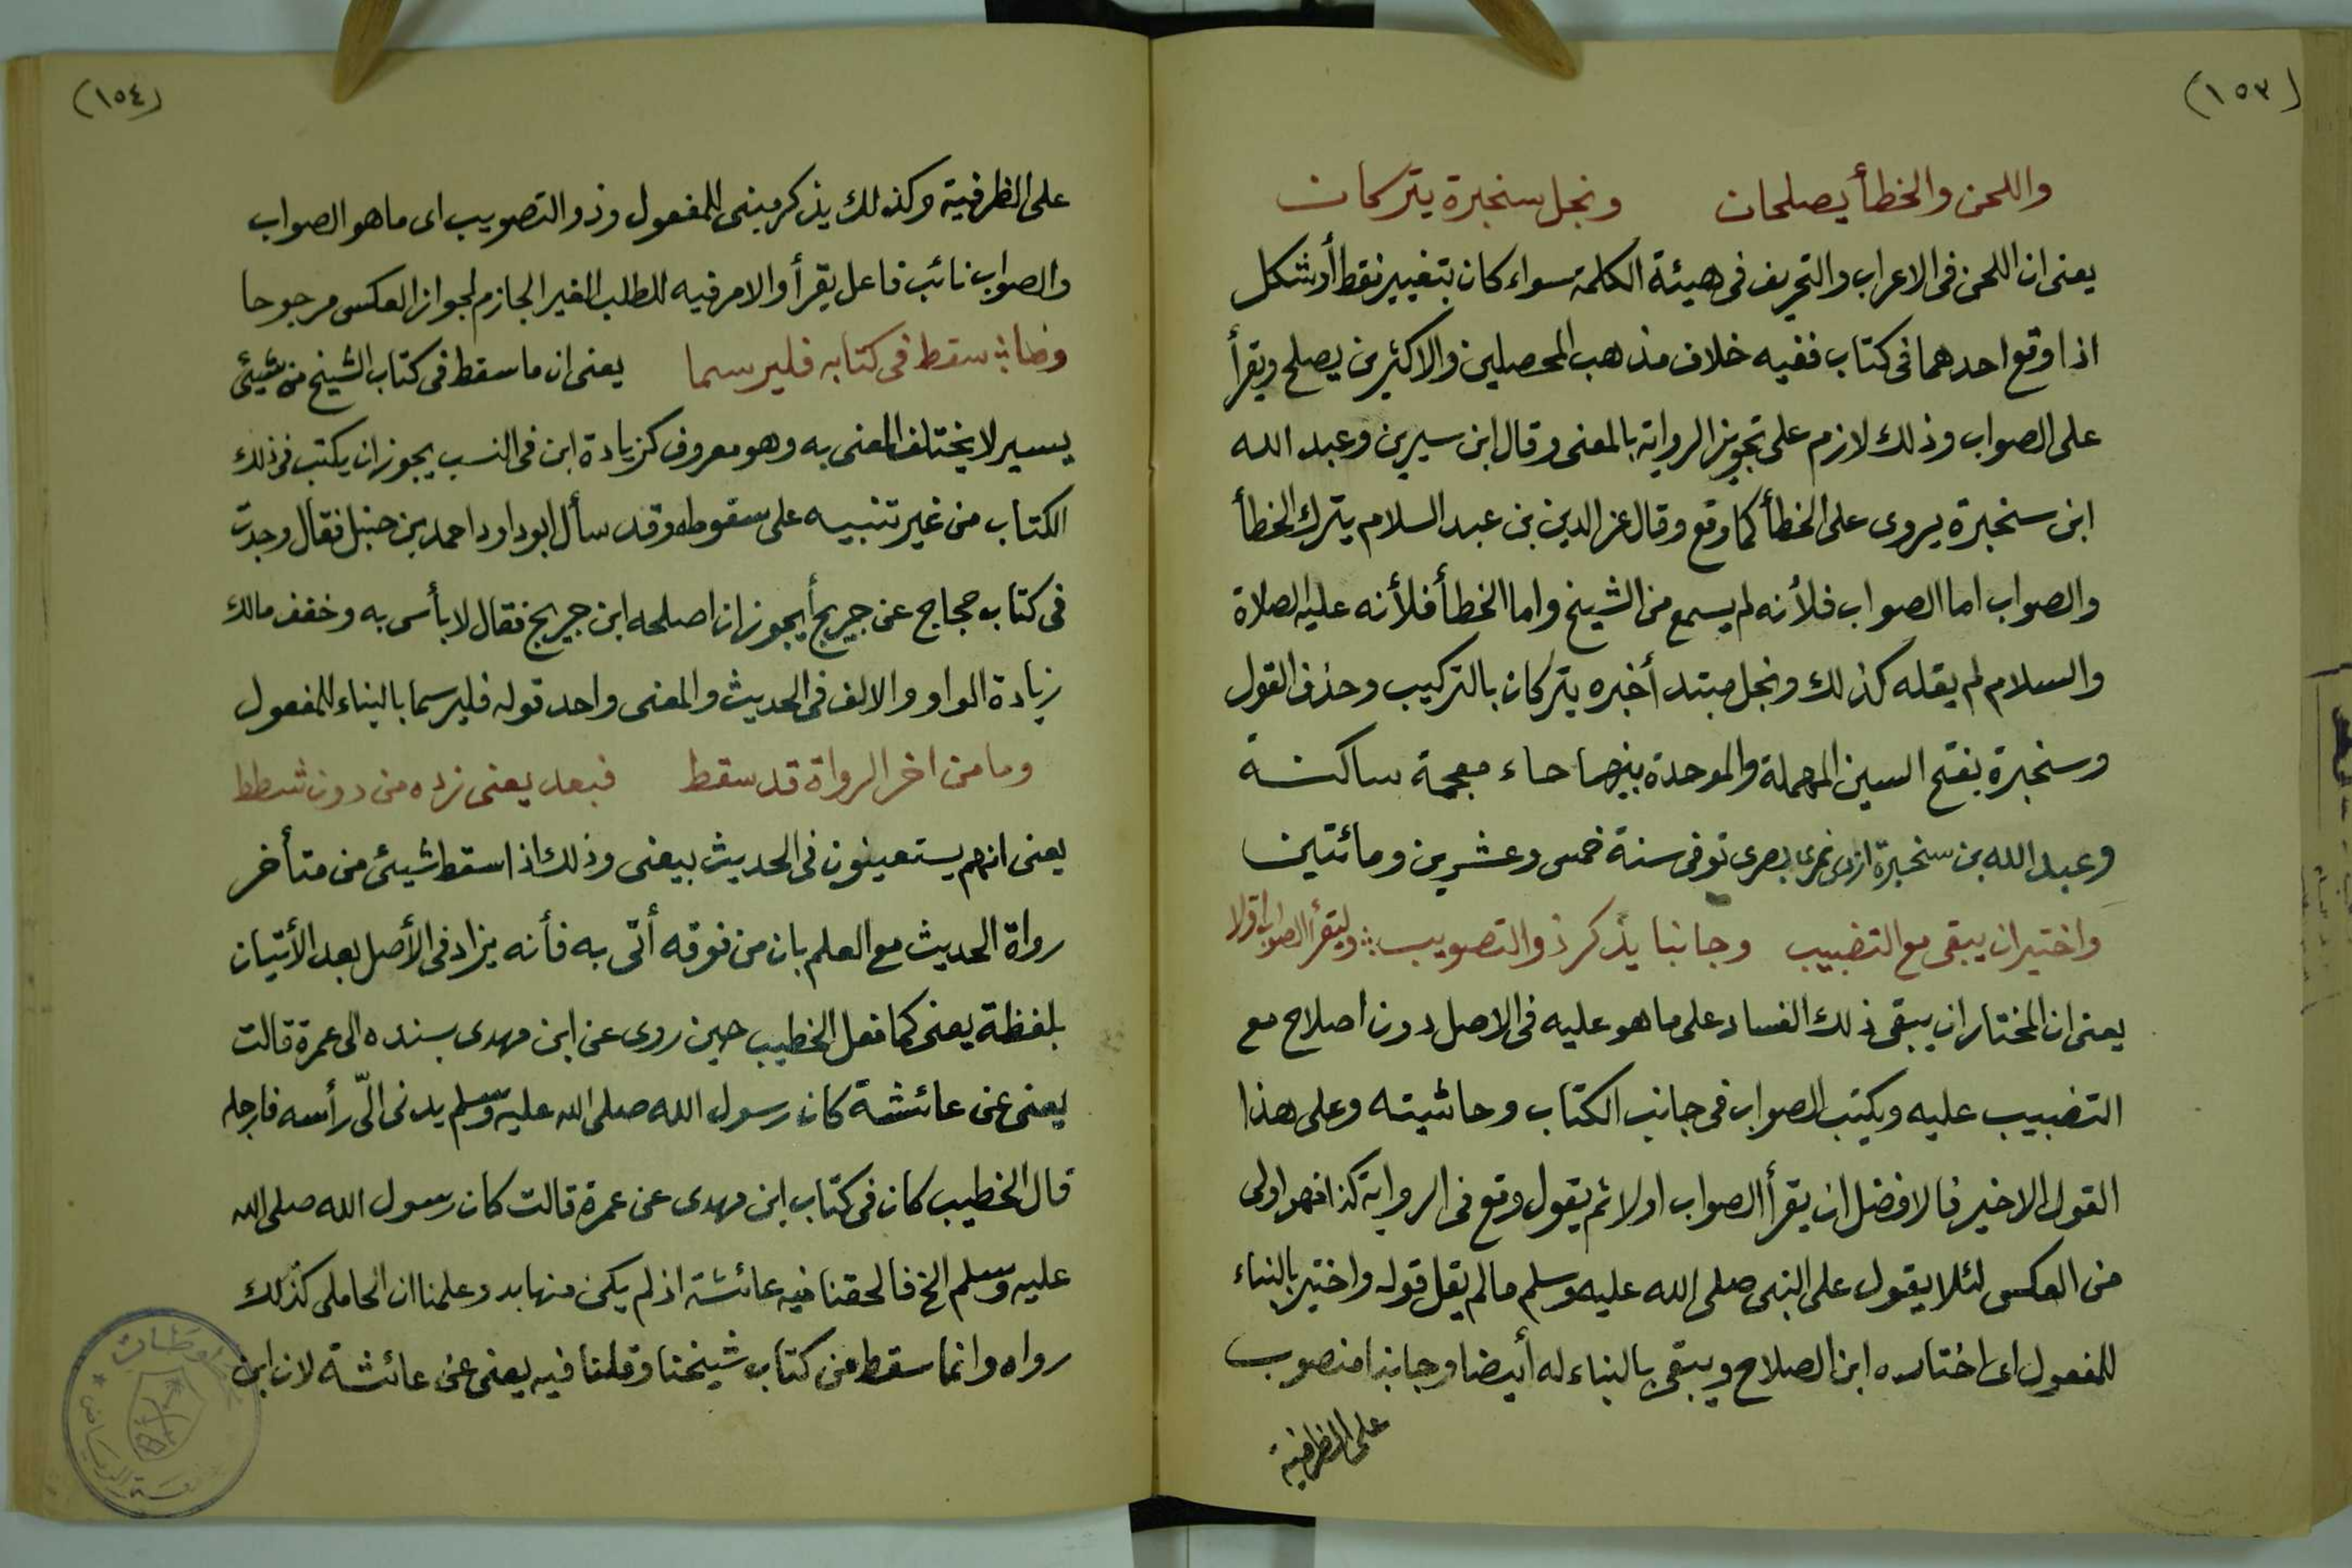 (١٥٣)
واللحن والخطأ يصلحان ونجل سنخبرة يتركان
يعنى ان اللحن فى الاعراب والتحريف فى هيئة الكلمة سواء كان بتغيير نقط أو شكل
اذا وقع احدهما فى كتاب ففيه خلاف مذهب المحصلين والاكثرين يصلح ويقرأ
على الصواب وذلك لازم على تجويز الرواية بالمعنى وقال ابن سيرين وعبد الله
ابن سنخبرة يروى على الخطأ كما وقع وقال عز الدين بن عبد السلام يترك الخطأ
والصواب اما الصواب فلأنه لم يسمع من الشيخ واما الخطأ فلأنه عليه الصلاة
والسلام لم يقله كذلك ونجل مبتدأ خبره يتركان بالتركيب وحذف القول
وسنخبرة بفتح السين المهملة والموحدة بينهما خاء معجمة ساكنة
وعبد الله بن سنخبرة ازدى نمرى بصرى توفى سنة خمس وعشرين ومائتين
واختير ان يبقى مع التضبيب وجانبا يذكر ذو التصويب ؛ وليقرأ الصواب اولا
يعنى ان المختار ان يبقى ذلك الفساد على ما هو عليه فى الاصل دون اصلاح مع
التضبيب عليه ويكتب الصواب فى جانب الكتاب وحاشيته وعلى هذا
القول الاخير فالافضل ان يقرأ الصواب اولا ثم يقول وقع فى الرواية كذا فهو اولى
من العكس لئلا يقول على النبى صلى الله عليه وسلم ما لم يقل قوله واختير بالبناء
للمفعول اى اختاره ابن الصلاح ويبقى بالبناء له أيضا وجانبا منصوب
على الظرفية
(١٥٤)
على الظرفية وكذلك يذكر مبنى للمفعول وذو التصويب اى ما هو الصواب
والصواب نائب فاعل يقرأ والامر فيه للطلب الغير الجازم لجواز العكس مرجوحا
سقط فى كتابه فليرسما يعنى ان ما سقط فى كتاب الشيخ من شيئ
يسير لا يختلف المعنى به وهو معروف كزيادة ابن فى النسب يجوز ان يكتب فى ذلك
الكتاب من غير تنبيه على سقوطه وقد سأل ابو داود احمد بن حنبل فقال وجدت
فى كتاب حجاج عن جريج أيجوز ان اصلحه ابن جريج فقال لا بأس به وخفف مالك
زيادة الواو والالف فى الحديث والمعنى واحد قوله فليرسما بالبناء للمفعول
وما من اخر الرواة قد سقط فبعد يعنى زده من دون شطط
يعنى انهم يستعينون فى الحديث بيعنى وذلك اذا سقط شيئ من متأخر
رواة الحديث مع العلم بان من فوقه أتى به فأنه يزاد فى الأصل بعد الأتيان
بلفظة يعنى كما فعل الخطيب حين روى عن ابن مهدى بسنده الى عمرة قالت
يعنى عن عائشة كان رسول الله صلى الله عليه وسلم يدنى الىّ رأسه فارجله
قال الخطيب كان فى كتاب ابن مهدى عن عمرة قالت كان رسول الله صلى الله
عليه وسلم الخ فالحقنا فيه عائشة اذ لم يكن منها بد وعلمنا ان المحاملى كذلك
رواه وانما سقط من كتاب شيخنا وقلنا فيه يعنى عن عائشة لان ابن